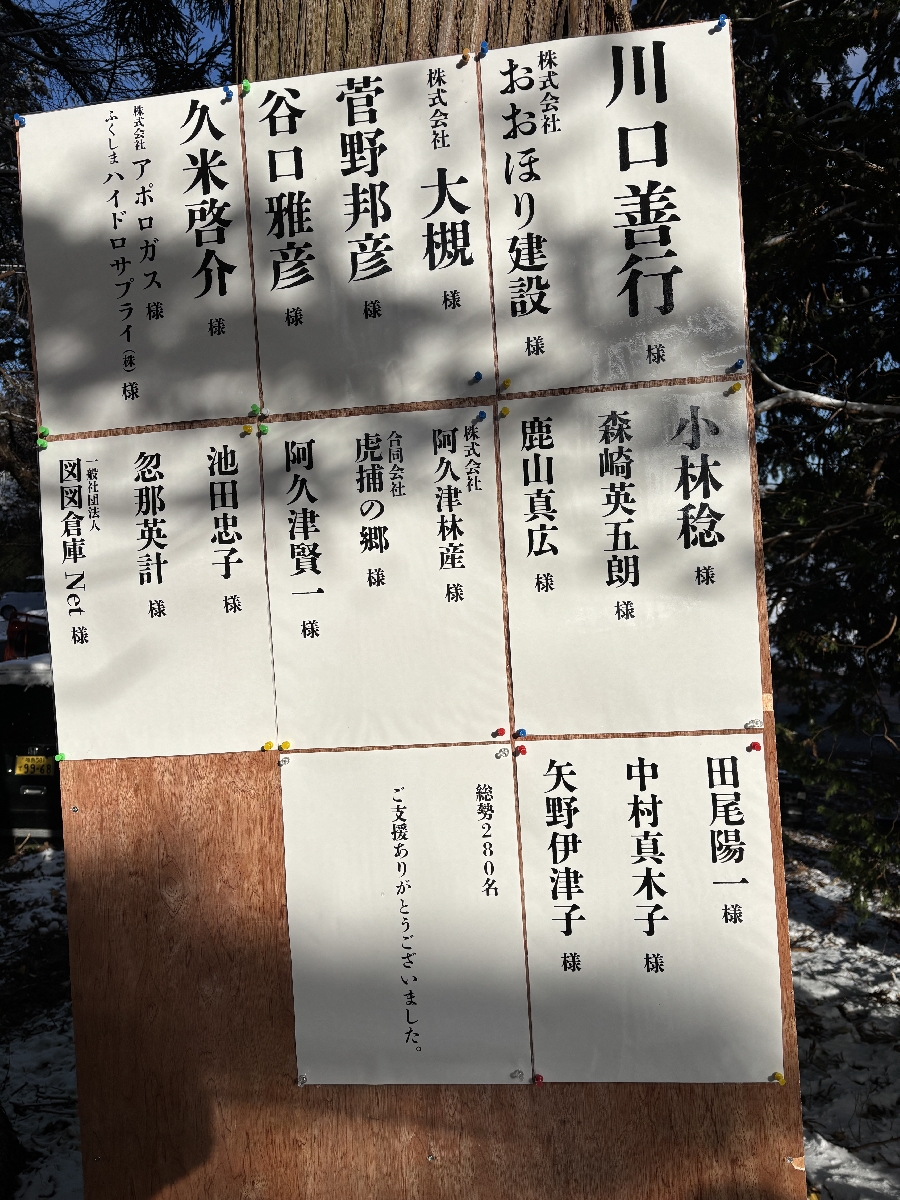 川口善行 様
株式会社
おおほり建設 様
株式会社 大槻 様
菅野邦彦 様
谷口雅彦 様
久米啓介 様
株式会社 アポロガス 様
ふくしまハイドロサプライ(株) 様
小林稔 様
森崎英五朗 様
鹿山真広 様
株式会社
阿久津林産 様
合同会社
虎捕の郷 様
阿久津賢一 様
池田忠子 様
忽那英計 様
一般社団法人
図図倉庫 Net 様
田尾陽一 様
中村真木子 様
矢野伊津子 様
総勢280名
ご支援ありがとうございました。
99-68